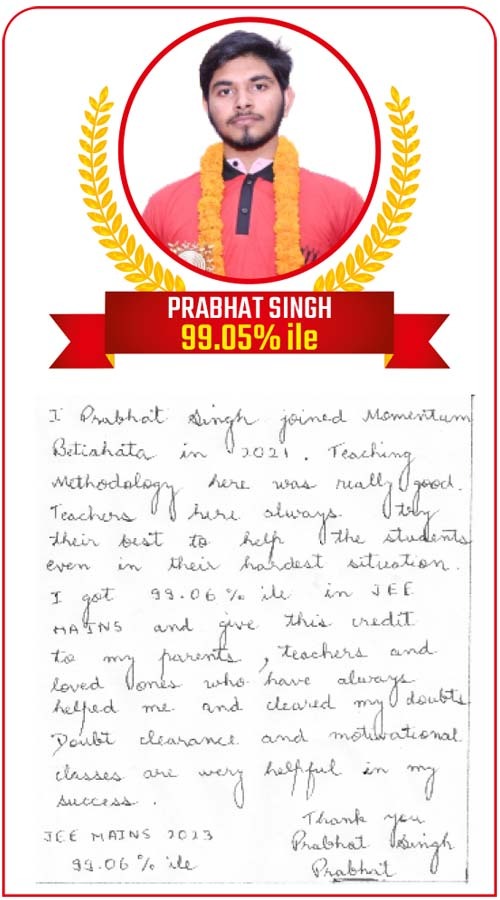 PRABHAT SINGH
99.05% ile
I Prabhat Singh joined Momentum
Betiahata in 2021. Teaching
Methodology here was really good.
Teachers here always try
their best to help the students
even in their hardest situation.
I got 99.06 % ile in JEE
MAINS and give this credit
to my parents, teachers and
loved ones who have always
helped me and cleared my doubts
Doubt clearance and motivational
classes are very helpful in my
success.
Thank you
JEE MAINS 2023
Prabhat Singh
99.06 % ile
Prabhat